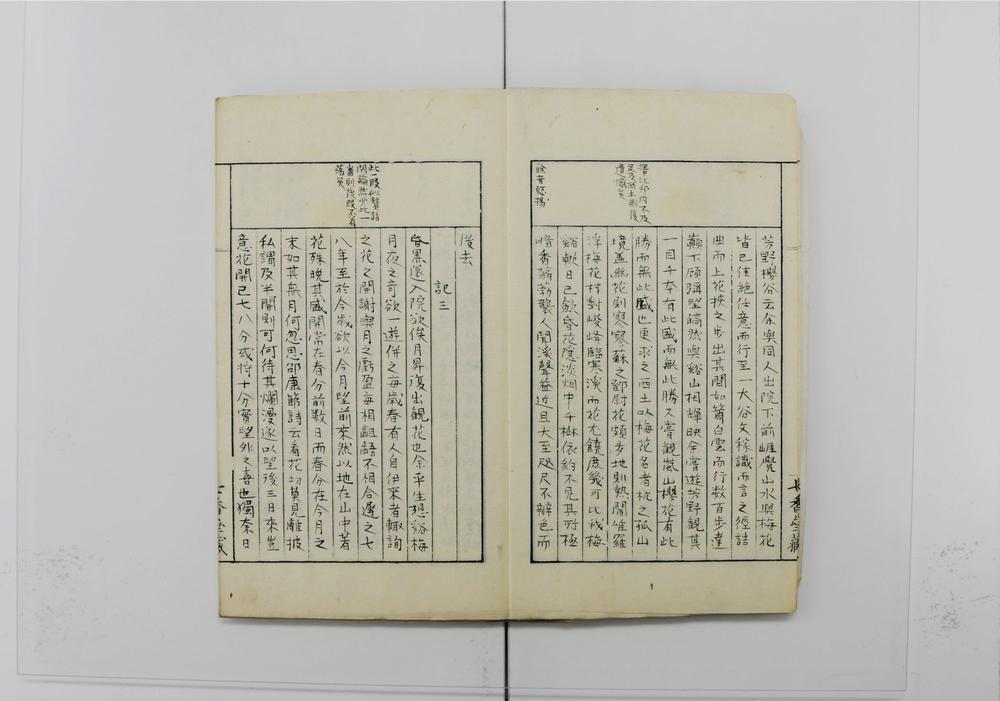 芳野櫻谷云余與同人出院下前崕覺山水與梅花
皆已佳絶任意而行至一大谷文稼識而言之徑詰
曲而上花挾之步出其間如簫白雲而行數百步達
巓下顧彌望皜然與谿山相輝映余嘗遊芳野觀其
一目千本有此盛而無此勝又嘗觀嵐山櫻花有此
勝而無此盛也更求之西土以梅花名者杭之孤山
境蓋幽花則寥寥蘇之鄧尉花頗多地則熱鬧惟羅
浮梅花村對峻峰臨寒溪而花尤饒庶幾可比我梅
谿歟日已欲昏花隱淡烟中千樹依約不見其所極
暗香蓊葧襲人聞溪聲益近且大至咫尺不辨色而
遺憾矣
餘音悠揚
1
後去
記三
昏黑還入院欲俟月昇復出觀花也余平生想谿梅
月夜之奇欲一遊併之每歲春有人自伊來者輙詢
之花之開謝與月之虧盈每相齟齬不相合遷之七
八年至於今歲欲以今月望前來然以地在山中著
花殊晚其盛開常在春分前數日而春分在今月之
末如其無月何忽思邵康節詩云看花切莫見離披
私謂及半開則可何待其爛漫遂以望後三日來豈
意花開已七八分或將十分實望外之喜也獨奈日
此段似贅話
閒論然少此一
番則後段不有
落矣